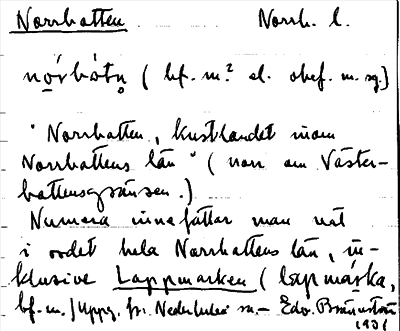 Norrbotten Norrb. l.
nórbòtn̥ (bf. m.? el. obef. m. sg.)
"Norrbotten, kustlandet inom
Norrbottens län" (norr om Väster-
bottensgränsen.)
Numera innefattar man nat
i ordet hela Norrbottens län, in-
klusive Lappmarken (lapmárka,
bf. m./Uppg. fr. Nederluleå sn.– Edv. Brännström
1931